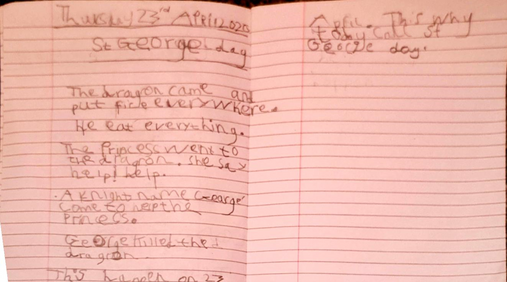 Thursday 23rd April 2020
St George day
The dragon came and
put fire everywhere.
He eat everything.
The Princess went to
the dragon. She say
help! help.
A Knight name George
came to help the
Princess.
George killed the
dragon.
This happen on 23
April. This why
today call St
George day.